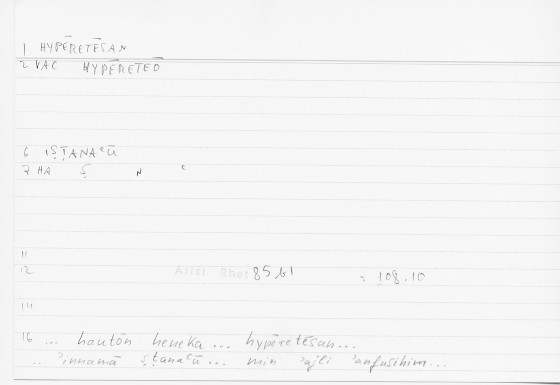 1 HYPĒRETĒSAN
2 VAC HYPĒRETEŌ
6 IṢṬANAʿŪ
7 HA Ṣ N ʿ
11
12 Arist Rhet 85b1 = 108.10
14
16 ... hautōn heneka ... hypēretēsan ...
.. ʾinnamā ṣṭanaʿū ... min ʾajli ʾanfusihim ...